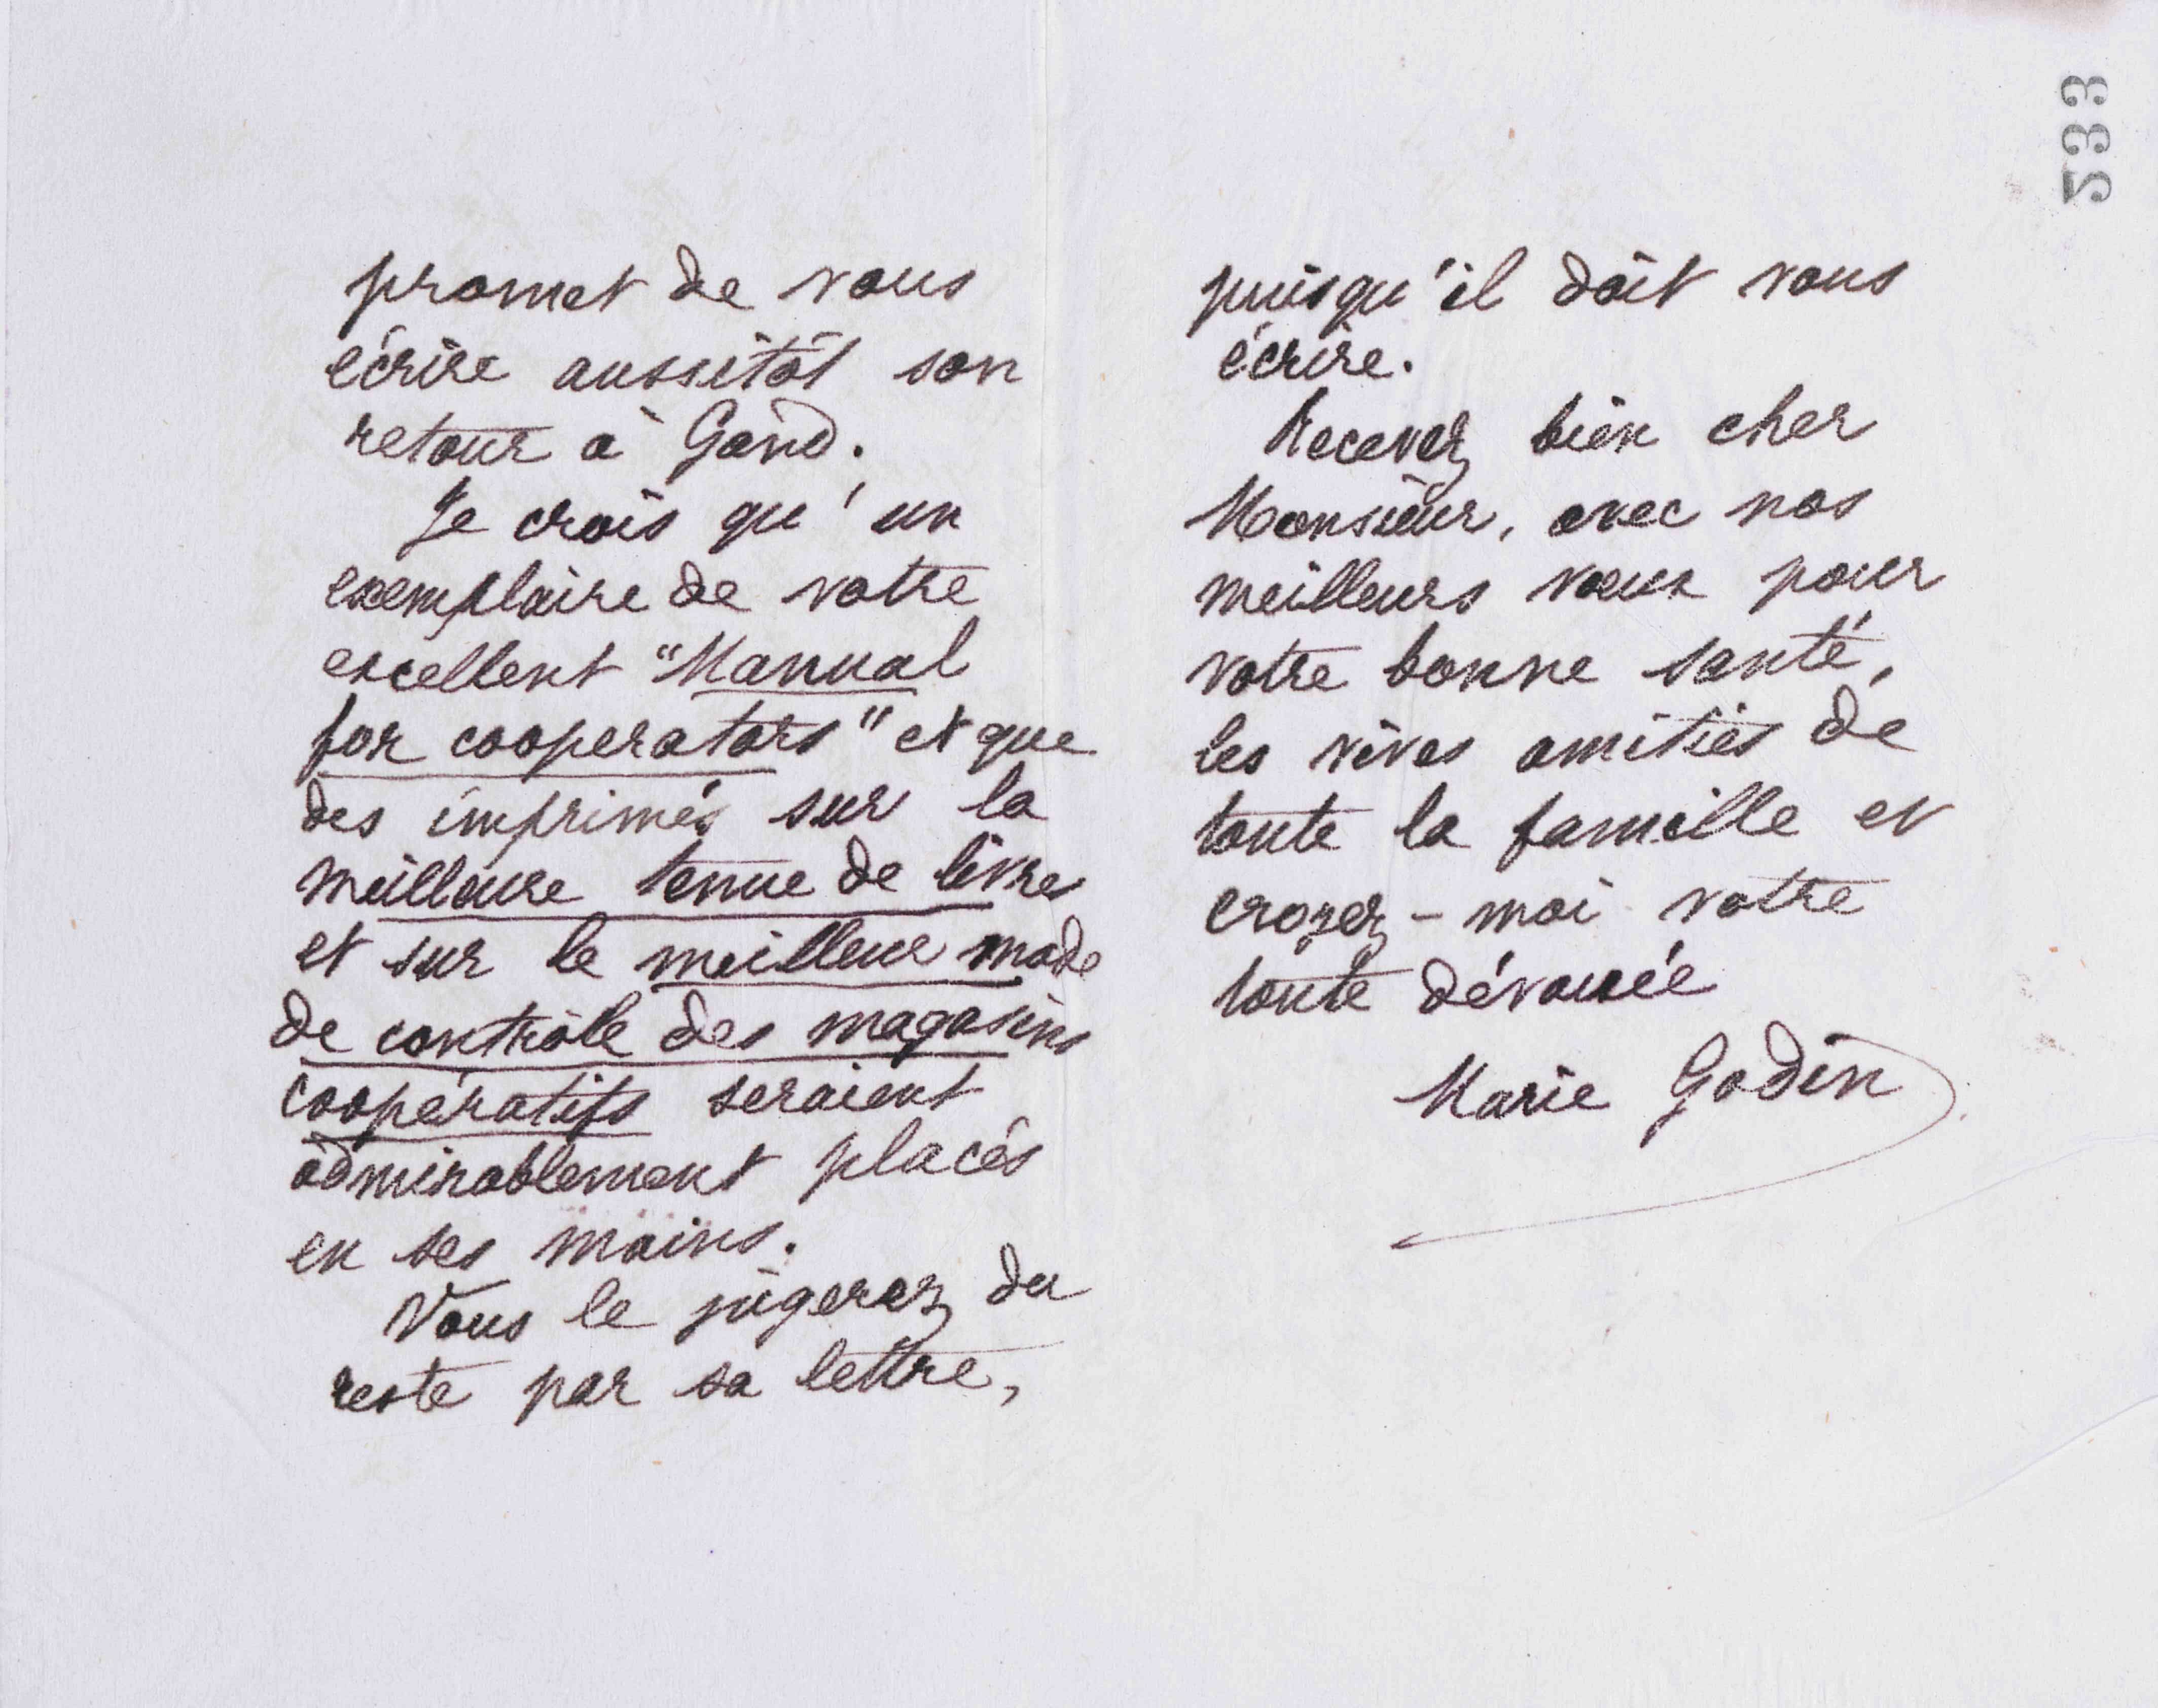 promet de vous
écrire aussitôt son
retour à Gand.
Je crois qu'un
exemplaire de votre
excellent "Manual
for cooperators" et que
des imprimés sur la
meilleure tenue de livres
et sur le meilleur mode
de contrôle des magasins
coopératifs seraient
admirablement placés
en ses mains.
Vous le jugerez du
reste par sa lettre,
puisqu'il doit vous
écrire.
Recevez bien cher
Monsieur, avec nos
meilleurs voeux pour
votre bonne santé,
les vives amitiés de
toute la famille et
croyez-moi votre
toute dévouée
Marie Godin
533